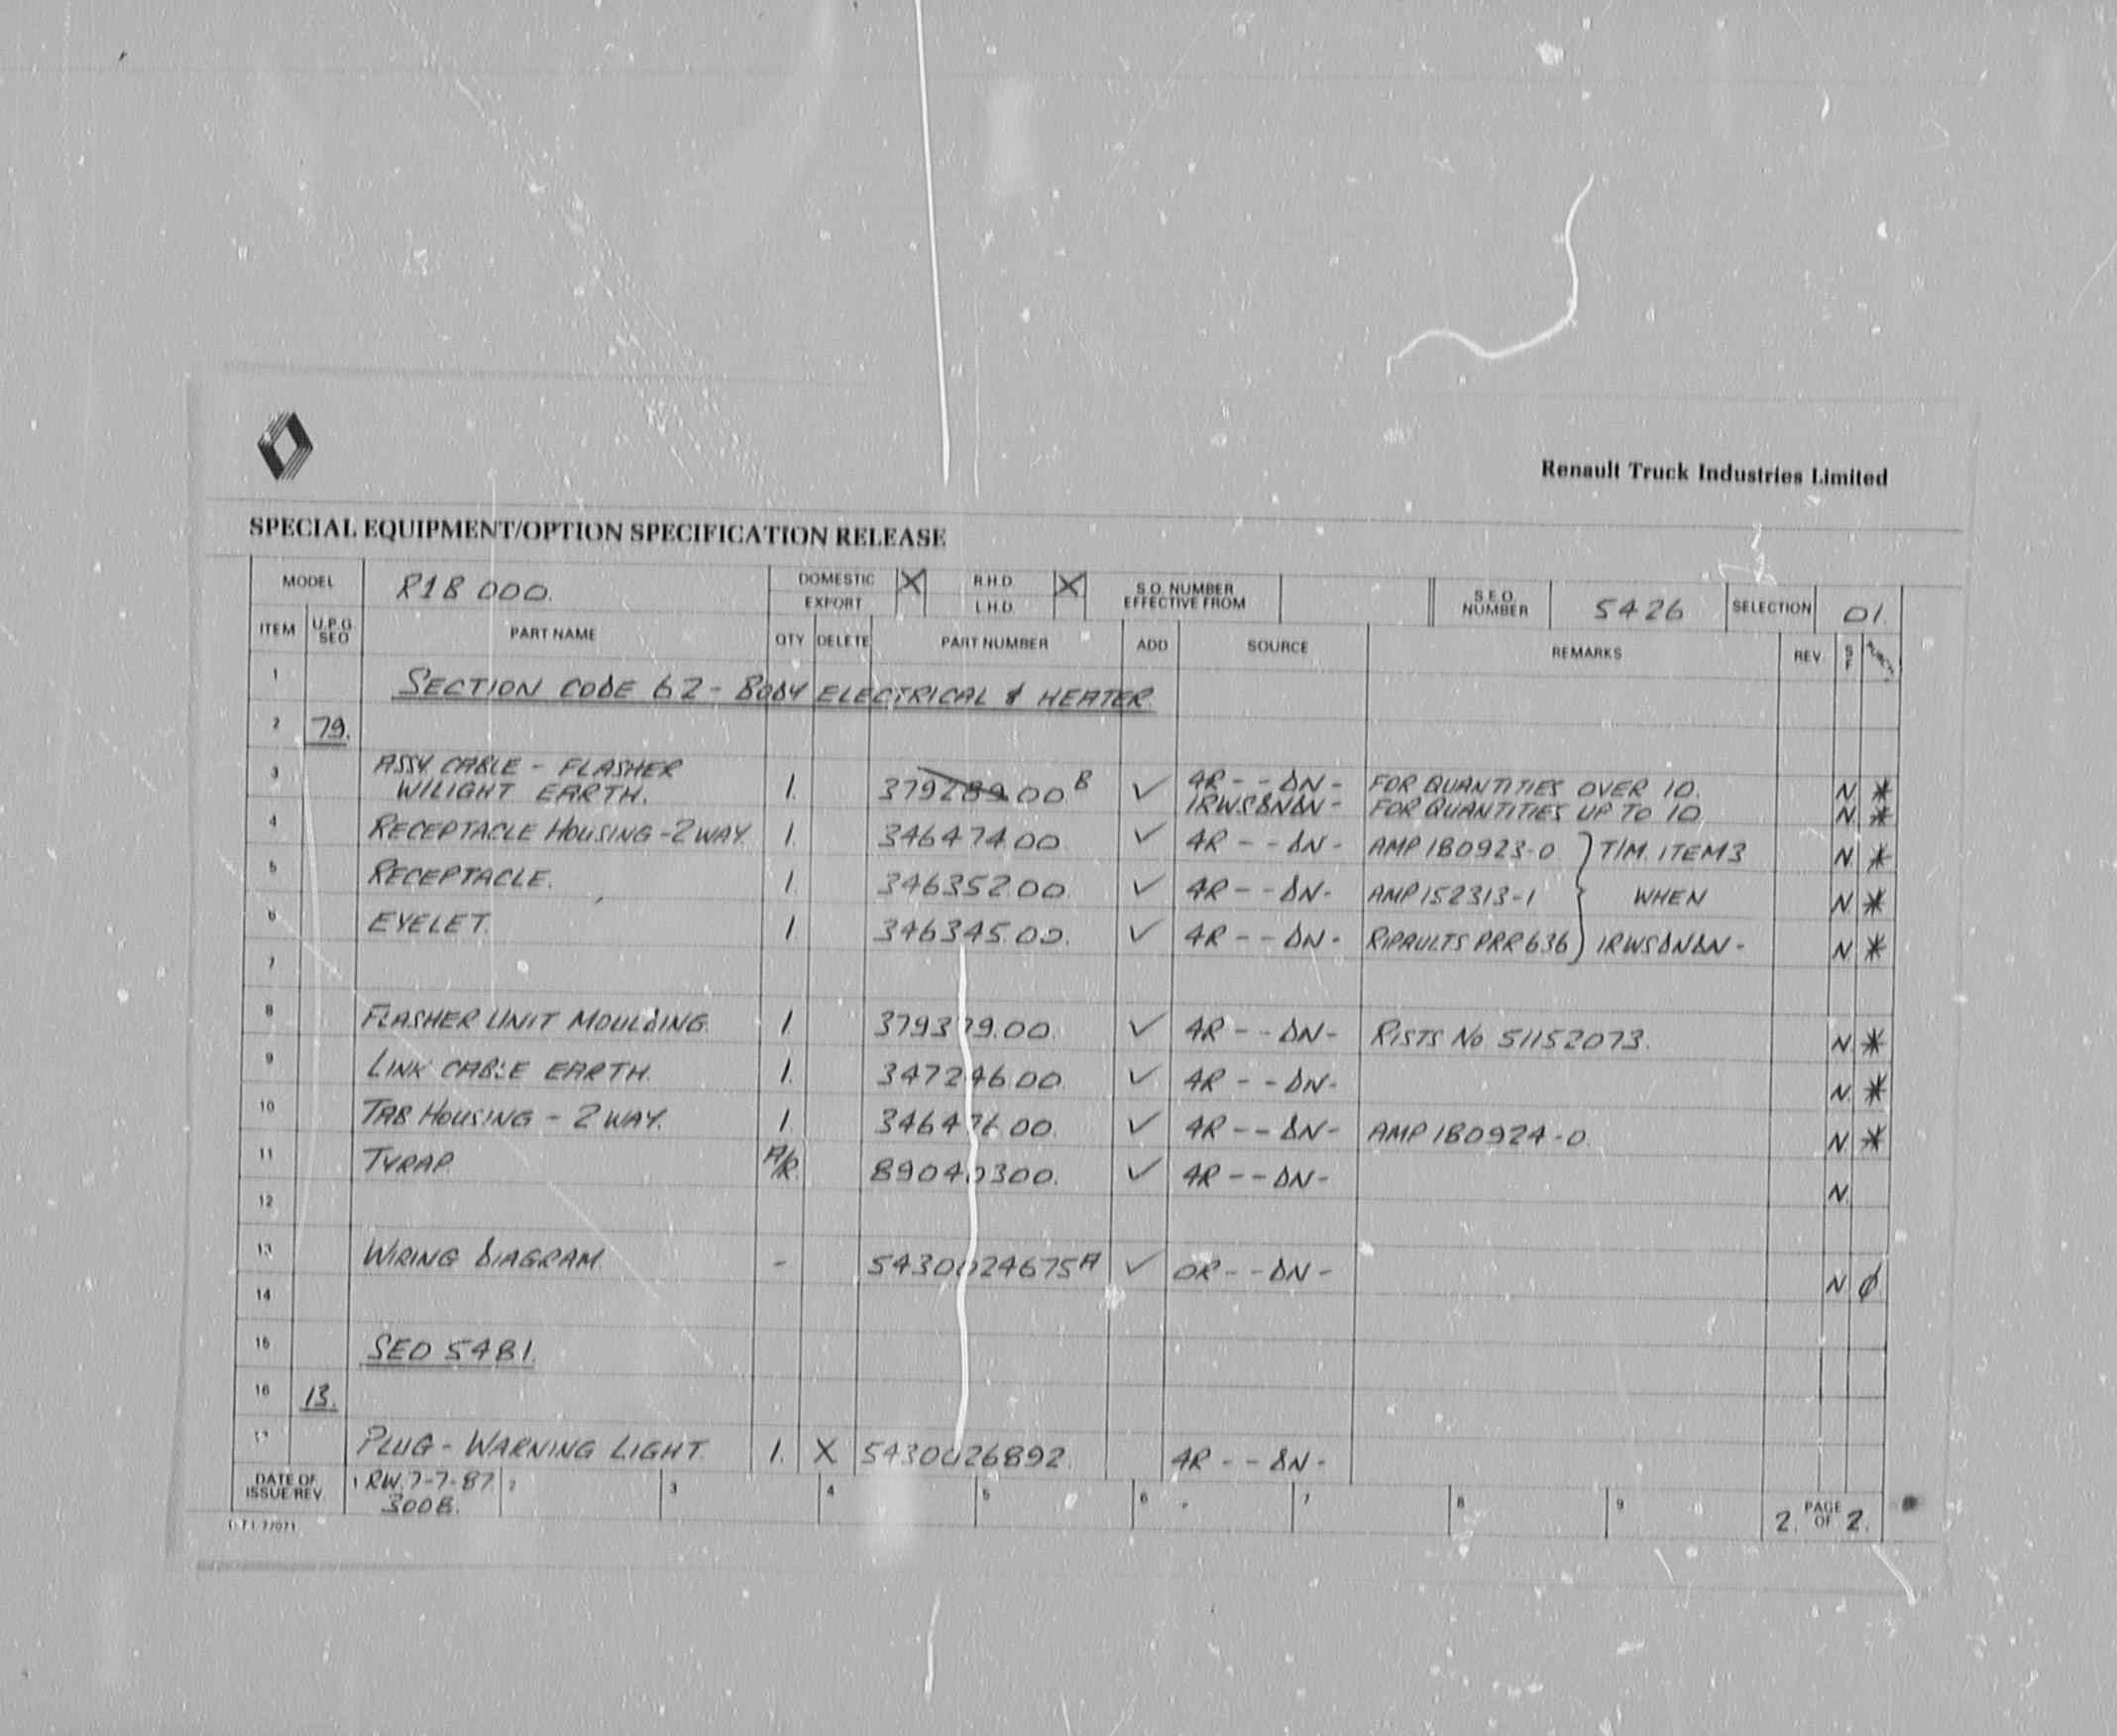 Renault Truck Industries Limited
SPECIAL EQUIPMENT/OPTION SPECIFICATION RELEASE
MODEL R18 000. DOMESTIC X R.H.D. X S.O. NUMBER EFFECTIVE FROM S.E.O. NUMBER 5426 SELECTION 01.
EXPORT L.H.D.
ITEM U.P.G. SEO PART NAME QTY DELETE PART NUMBER ADD SOURCE REMARKS REV S F
1 SECTION CODE 62 - BODY ELECTRICAL & HEATER.
2 79.
3 ASSY. CABLE - FLASHER 4R - - DN - FOR QUANTITIES OVER 10. N *
W/LIGHT EARTH. 1. 37928900 B ✓ 1RWSDNDN - FOR QUANTITIES UP TO 10. N. *
4 RECEPTACLE HOUSING - 2 WAY. 1. 346474.00 ✓ 4R - - DN - AMP 180923-0 } T/M. ITEM 3 N *
5 RECEPTACLE. 1. 346352.00. ✓ 4R - - DN - AMP 152313-1 WHEN N. *
6 EYELET. 1 346345.00. ✓ 4R - - DN - RIPAULTS PRR 636 1RWSDNDN - N. *
7
8 FLASHER UNIT MOULDING. 1. 379379.00. ✓ 4R - - DN - RISTS No 51152073. N. *
9 LINK CABLE EARTH. 1. 347246.00. ✓ 4R - - DN - N. *
10 TAB HOUSING - 2 WAY. 1. 346476.00. ✓ 4R - - DN - AMP 180924-0. N. *
11 TYRAP. A/R. 89040300. ✓ 4R - - DN - N.
12
13 WIRING DIAGRAM. - 5430024675 A ✓ OR - - DN - N. φ
14
15 SEO 5481.
16 13.
17 PLUG - WARNING LIGHT. 1. X 5430026892. 4R - - DN -
DATE OF ISSUE/REV. 1 RW. 7-7-87. 2 3 4 5 6 7 8 9 2. PAGE OF 2.
3008.